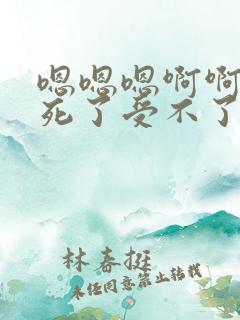 嗯嗯嗯啊啊
死了受不了
林春挺
未经同意禁止转载